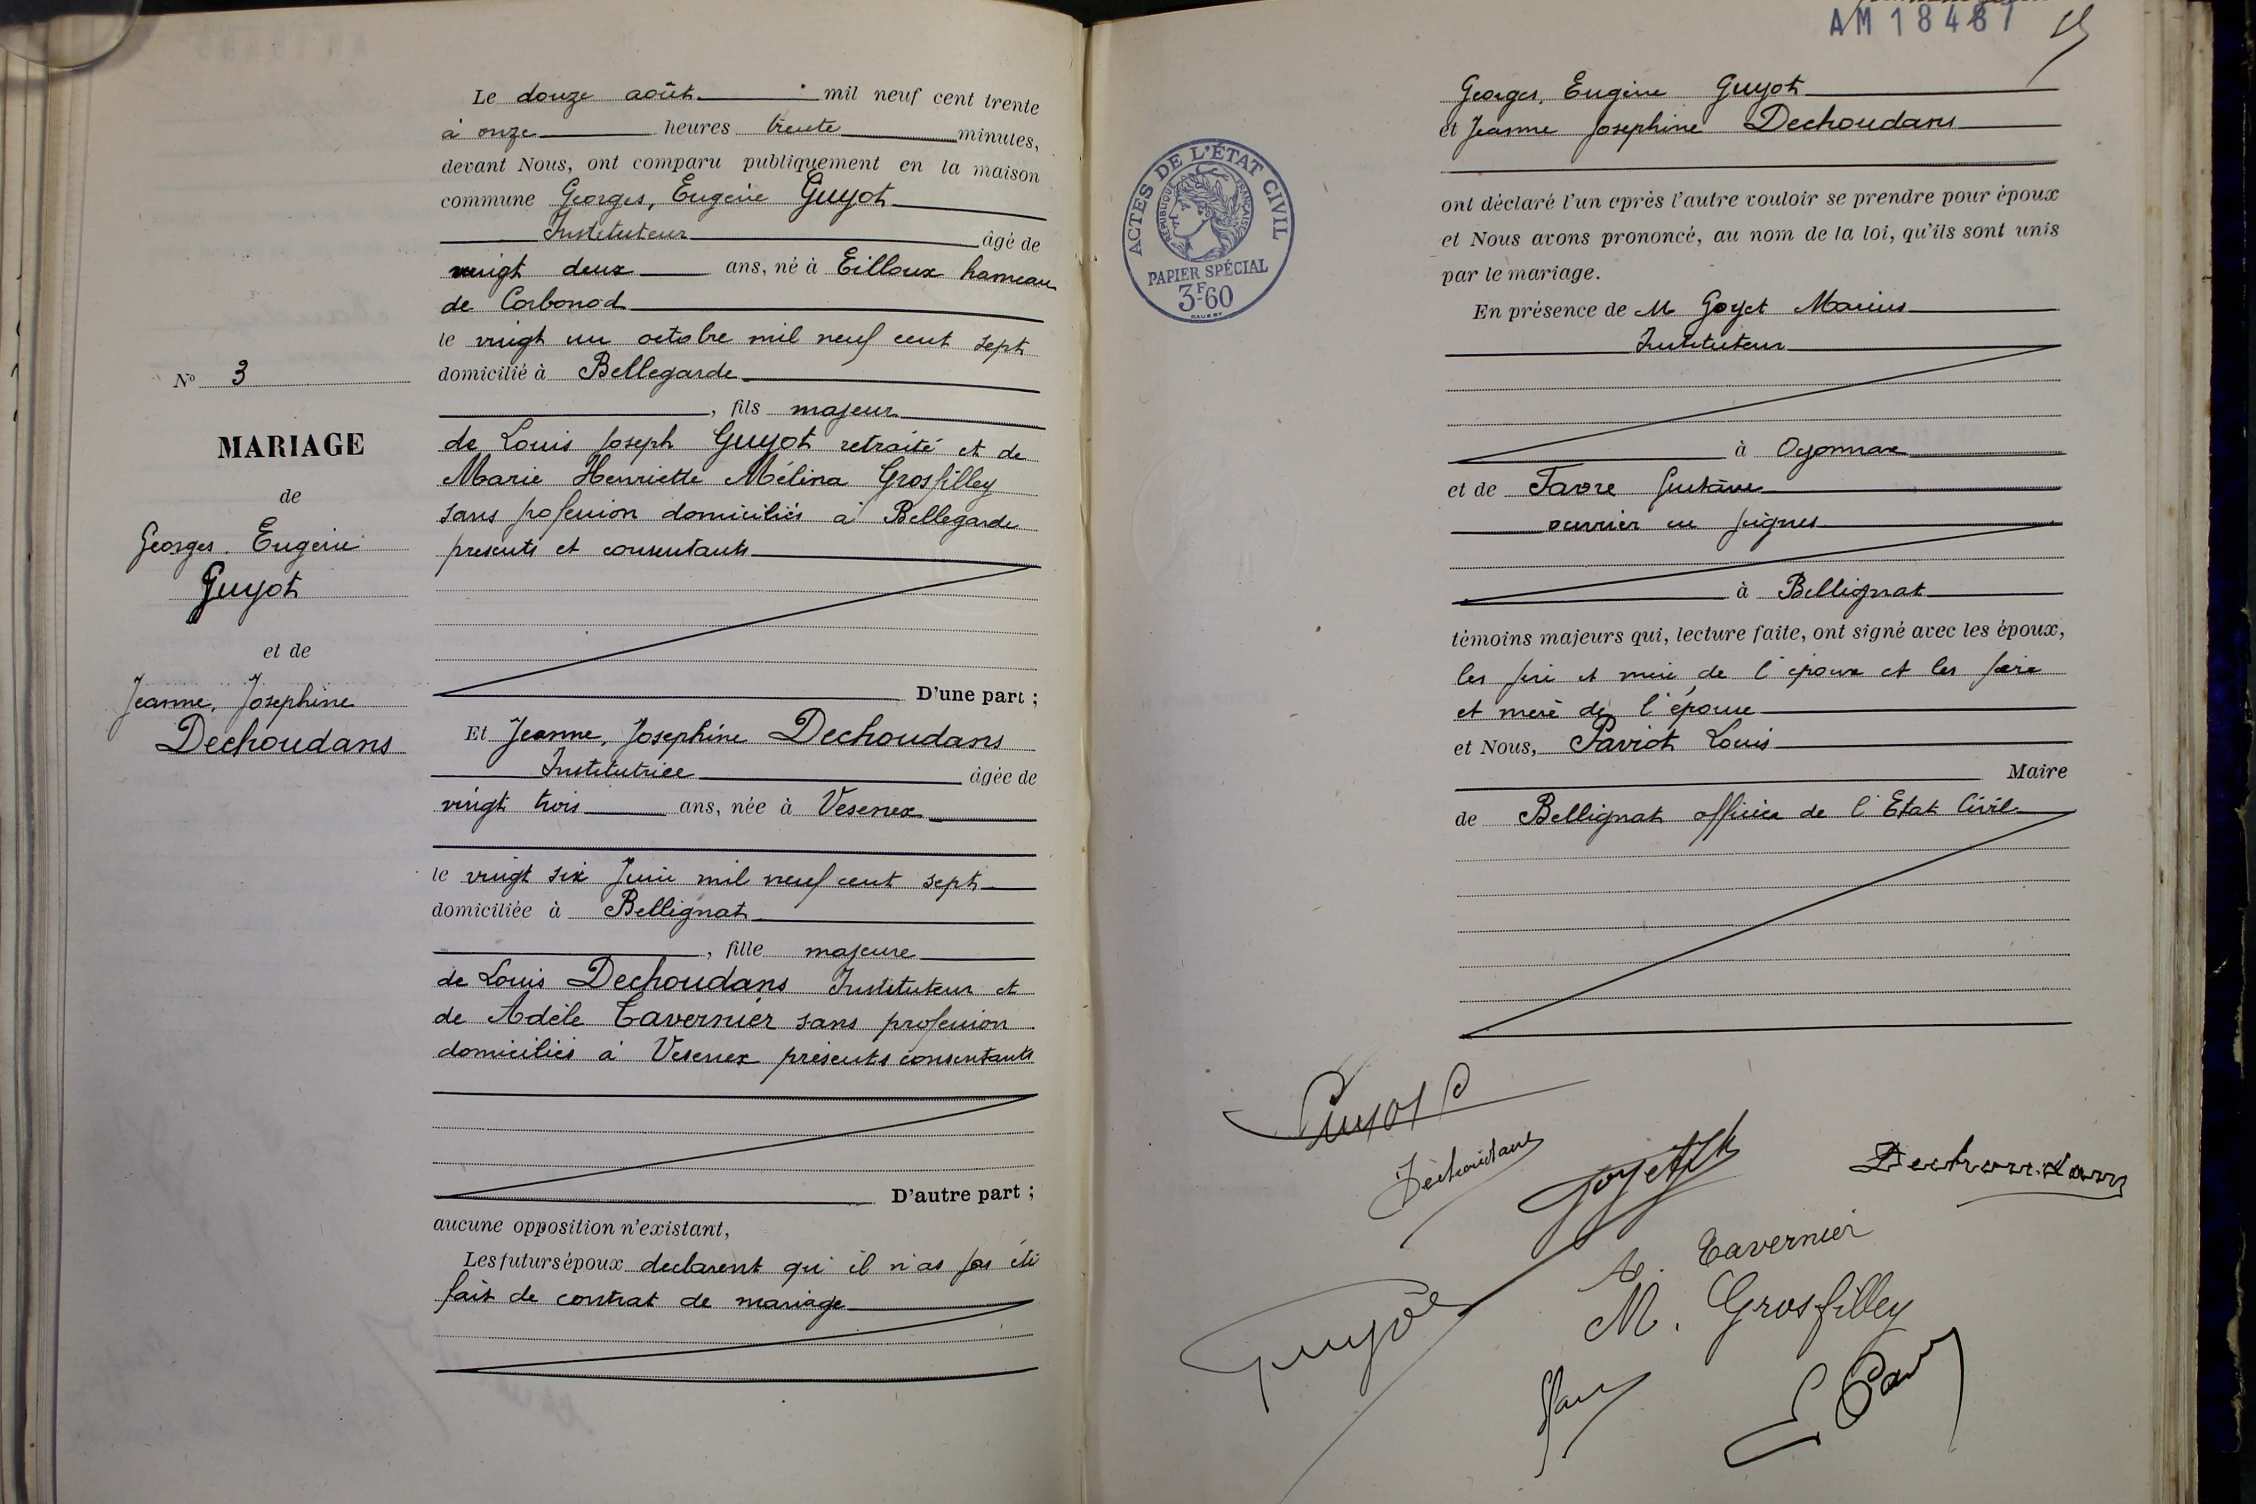 Le douze août mil neuf cent trente
à onze heures trente minutes,
devant Nous, ont comparu publiquement en la maison
commune Georges, Eugène Guyot
Instituteur âgé de
vingt deux ans, né à Eilloux hameau
de Corbonod
le vingt un octobre mil neuf cent sept
domicilié à Bellegarde
, fils majeur
de Louis Joseph Guyot retraité et de
Marie Henriette Mélina Grosfilley
sans profession domiciliés à Bellegarde
présents et consentants
D'une part ;
Et Jeanne, Josephine Dechoudans
Institutrice âgée de
vingt trois ans, née à Vesenex
le vingt six Juin mil neuf cent sept
domiciliée à Bellignat
, fille majeure
de Louis Dechoudans Instituteur et
de Adèle Tavernier sans profession
domiciliés à Vesenex présents consentants
D'autre part ;
aucune opposition n'existant,
Les futurs époux declarent qu'il n'as pas été
fait de contrat de mariage
No 3
MARIAGE
de
Georges. Eugène
Guyot
et de
Jeanne, Josephine
Dechoudans
AM 18487
Georges, Eugène Guyot
et Jeanne Josephine Dechoudans
ont déclaré l'un après l'autre vouloir se prendre pour époux
et Nous avons prononcé, au nom de la loi, qu'ils sont unis
par le mariage.
En présence de M Goyet Marius
Instituteur
à Oyonnax
et de Favre Gustave
ouvrier en peignes
à Bellignat
témoins majeurs qui, lecture faite, ont signé avec les époux,
les père et mère de l'époux et les père
et mère de l'épouse
et Nous, Paviot Louis
Maire
de Bellignat officier de l'Etat Civil
ACTES DE L'ÉTAT CIVIL
RÉPUBLIQUE FRANÇAISE
PAPIER SPÉCIAL
3F60
Guyot G
Dechoudans
Goyet
Dechoudans
A. Tavernier
M. Grosfilley
Guyot